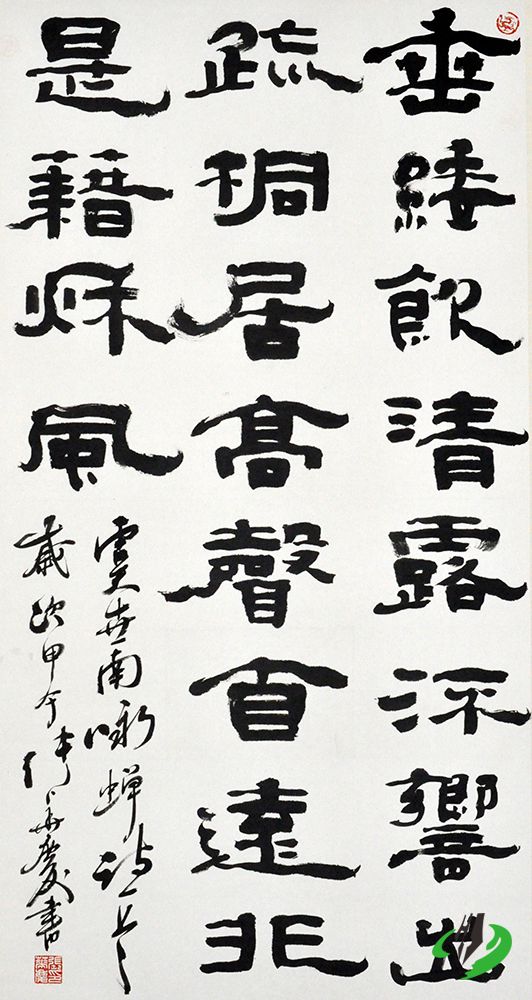 垂緌飲清露流響出
疏桐居高聲自遠非
是藉秋風
虞世南咏蝉诗一首
歲次甲午张华慶書